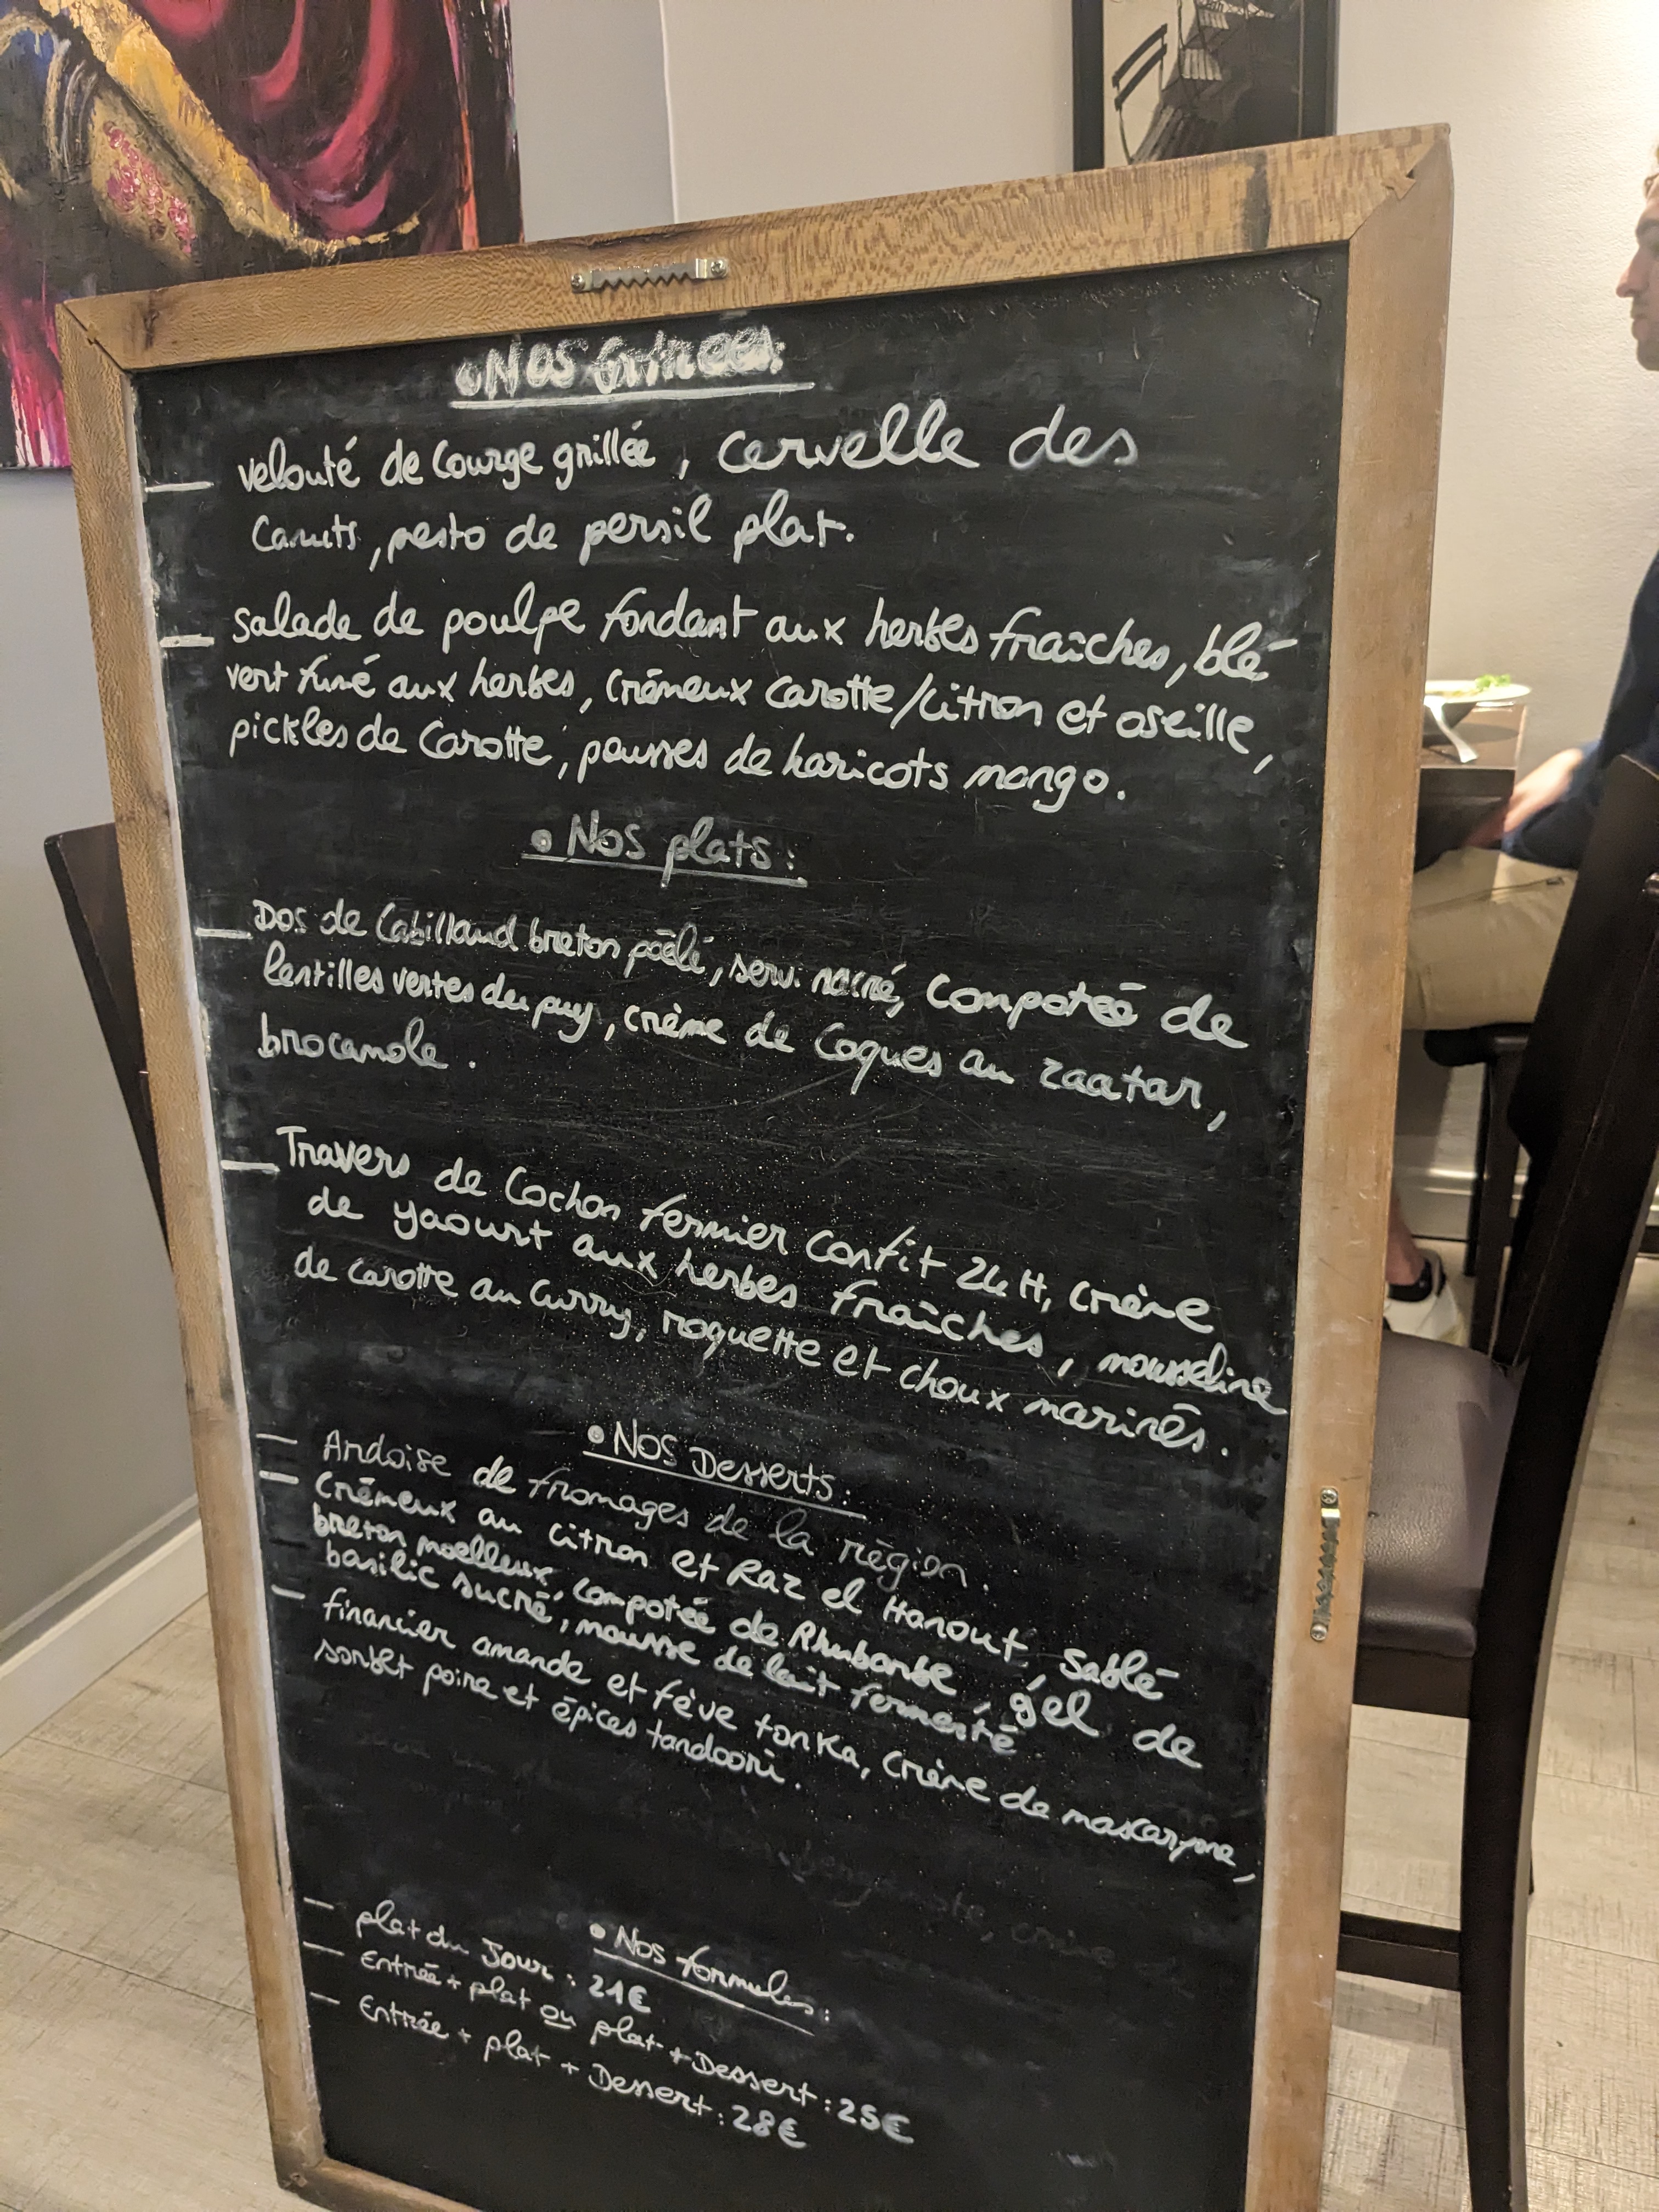 • Nos Entrées:
— velouté de Courge grillée, cervelle des
Canuts, pesto de persil plat.
— salade de poulpe fondant aux herbes fraîches, blé
vert fumé aux herbes, crémeux carotte/citron et oseille,
pickles de Carotte, pousses de haricots mango.
• Nos plats:
— Dos de Cabillaud breton poêlé, servi nacré, compotée de
lentilles vertes du puy, crème de Coques au zaatar,
brocamole.
— Travers de Cochon fermier confit 24H, crème
de yaourt aux herbes fraîches, mousseline
de carotte au Curry, roquette et choux marinés.
• Nos Desserts:
— Ardoise de fromages de la région.
— Crémeux au citron et Raz el Hanout, Sablé
breton moelleux, compotée de Rhubarbe, gel de
basilic sucré, mousse de lait fermenté
— financier amande et fève tonka, crème de mascarpone,
sorbet poire et épices tandoori.
• Nos formules:
— plat du Jour: 21€
— Entrée + plat ou plat + Dessert: 25€
— Entrée + plat + Dessert: 28€